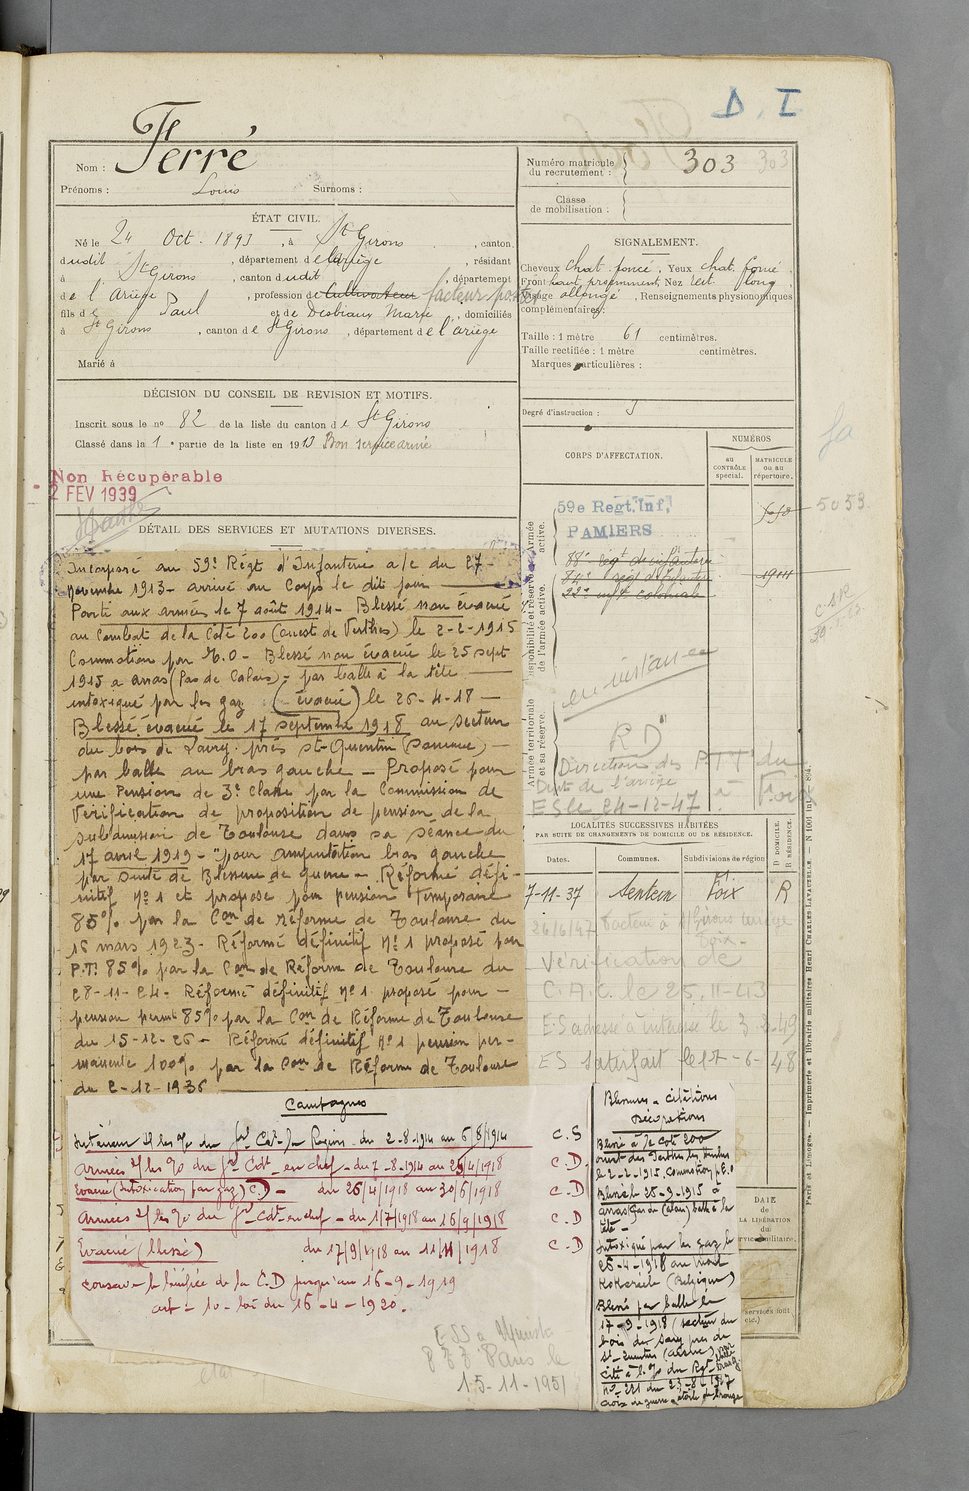 D. I
Nom : Ferré
Prénoms : Louis Surnoms :
Numéro matricule du recrutement : 303 303
Classe de mobilisation :
ÉTAT CIVIL.
Né le 24 Oct. 1893, à St Girons, canton
dudit, département de l'Ariège, résidant
à St Girons, canton dudit, département
de l'Ariège, profession de Cultivateur facteur postes
fils de Paul et de Desbiaux Marie, domiciliés
à St Girons, canton de St Girons, département de l'ariège
Marié à
SIGNALEMENT.
Cheveux chat. foncé, Yeux chat. foncé,
Front haut, Nez rect. long,
Visage allongé, Renseignements physionomiques
complémentaires :
Taille : 1 mètre 61 centimètres.
Taille rectifiée : 1 mètre centimètres.
Marques particulières :
DÉCISION DU CONSEIL DE REVISION ET MOTIFS.
Inscrit sous le no 82 de la liste du canton de St Girons
Classé dans la 1e partie de la liste en 1913 Bon service armé
Degré d'instruction : 3
Non Récupérable
2 FEV 1939
DÉTAIL DES SERVICES ET MUTATIONS DIVERSES.
Incorporé au 59e Régt d'Infanterie a/c du 27
Novembre 1913 - arrivé au Corps le dit jour
Porté aux armées le 7 août 1914 - Blessé non évacué
au Combat de la Cote 200 (ouest de Perthes) le 2-2-1915
Commotion par E.O - Blessé non évacué le 25 sept
1915 a arras (Pas de Calais) - par balle à la tête
intoxiqué par les gaz (évacué) le 26-4-18 -
Blessé évacué le 17 septembre 1918 au secteur
du bois de Savy près St-Quentin -
par balle au bras gauche - Proposé pour
une Pension de 3e Classe par la Commission de
Vérification de proposition de pension de la
subdivision de Toulouse dans sa séance du
17 avril 1919 - "pour amputation bras gauche
par suite de Blessure de guerre - Réformé défi-
nitif no 1 et proposé pour pension Temporaire
85% par la Con de réforme de Toulouse du
15 mars 1923 - Réformé définitif No 1 proposé pour
P.T. 85% par la Con de Réforme de Toulouse du
28-11-24 - Réformé définitif no 1 proposé pour -
pension permte 85% par la Con de Réforme de Toulouse
du 15-12-26 - Réformé définitif No 1 pension per-
manente 100% par la Con de Réforme de Toulouse
du 2-12-1936
CORPS D'AFFECTATION.
NUMÉROS
au CONTRÔLE spécial.
MATRICULE ou au répertoire.
Armée active.
59e Regt. Inf,
PAMIERS
5053
Disponibilité et réserve de l'armée active.
88e regt d'infanterie
22e inft coloniale
en instance
Armée territoriale et sa réserve.
"RD"
Direction des PTT du
Dept de l'ariège à Foix
ES le 24-12-47
LOCALITÉS SUCCESSIVES HABITÉES
PAR SUITE DE CHANGEMENTS DE DOMICILE OU DE RÉSIDENCE.
Dates. Communes. Subdivisions de région
D. DOMICILE.
R. RÉSIDENCE.
7-11-37 Sentein Foix R
26/6/47 Facteur à St Girons ariège
Foix -
Vérification de
C.A.C. le 25.11-43
ES adresse à intéressé le 3-3-49
ES satisfait le 17-6-48
Campagnes
Intérieur du 2-8-1914 au 6/8/1914 C.S
Armées du 7-8-1914 au 25/4/1918 C.D.
Evacué (Intoxication par gaz) C.D - du 26/4/1918 au 30/6/1918 C.D
Armées du 1/7/1918 au 16/9/1918 C.D
Evacué (blessé) du 17/9/1918 au 11/11/1918 C.D
conserve le bénéfice de la C.D jusqu'au 16-9-1919
art - 10 - loi du 16-4-1920.
Blessures - citations
Décorations
Blessé à la cote 200
ouest des Perthes les Hurlus
le 2-2-1915. Commotion p. E.O
Blessé le 25-9-1915 à
arras (Pas de Calais) balle à la
tête -
Intoxiqué par les gaz le
25-4-1918 au mont
Kokereele (Belgique)
Blessé par balle le
17-9-1918 (secteur du
bois de Savy près de
St-Quentin (aisne)
Cité à l'o/ du Rgt
no 221 du 23-8-1917
croix de guerre étoile de bronze
15-11-1951
Paris et Limoges. — Imprimerie et librairie militaires Henri CHARLES-LAVAUZELLE. — N 1001